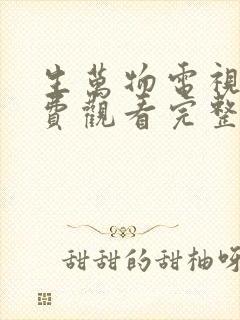 生萬物電視
費觀看完整
甜甜的甜柚呀